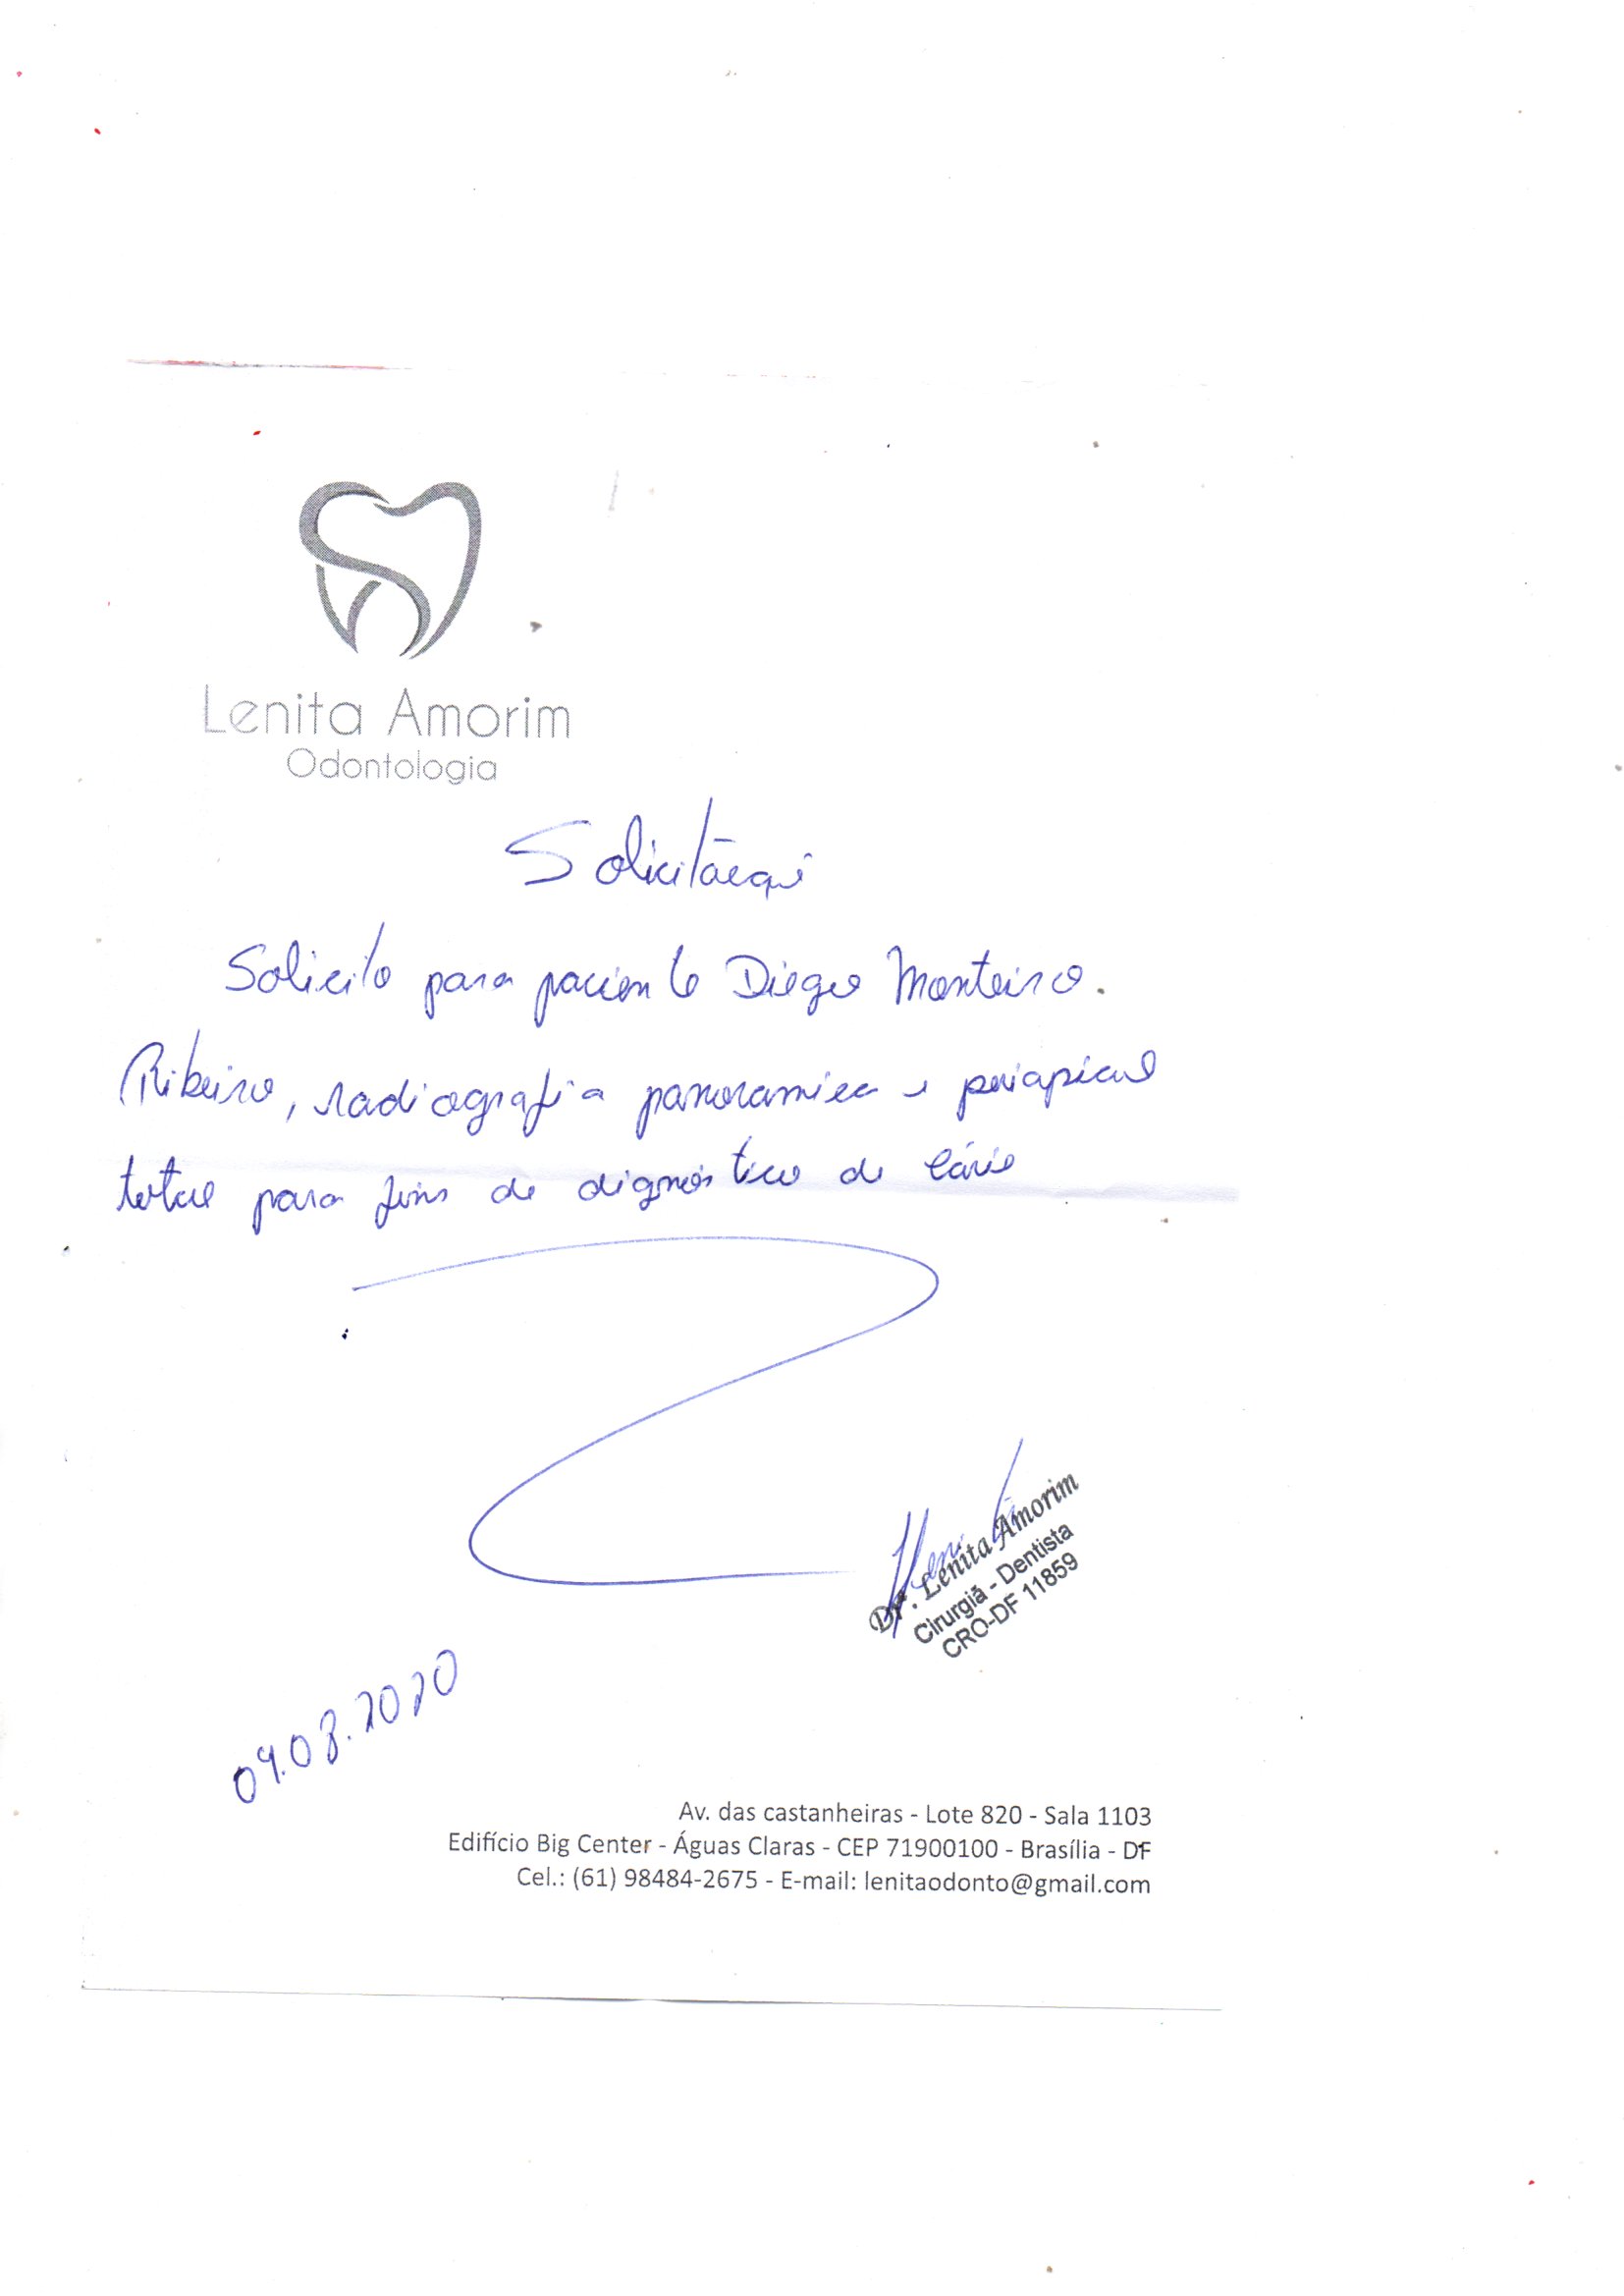 Lenita Amorim
Odontologia
Solicitação
Solicito para paciente Diego Monteiro.
Ribeiro, radiografia panoramica e periapical
total para fins de dignóstico de cárie
Drª. Lenita Amorim
Cirurgiã - Dentista
CRO-DF 11859
04.08.2020
Av. das castanheiras - Lote 820 - Sala 1103
Edifício Big Center - Águas Claras - CEP 71900100 - Brasília - DF
Cel.: (61) 98484-2675 - E-mail: lenitaodonto@gmail.com